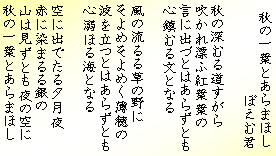 秋の一葉とあらまほし
ぽえむ君
秋の深むる道すがら
吹かれ漂ふ紅葉葉の
言に出づとはあらずとも
心鎮むる文となる
風の流るる草の野に
そよめそよめく薄穂の
波を立つとはあらずとも
心溺るる海となる
空に出でたる夕月夜
赤に染まるる銀の
山は見ずとも夜の空に
秋の一葉とあらまほし